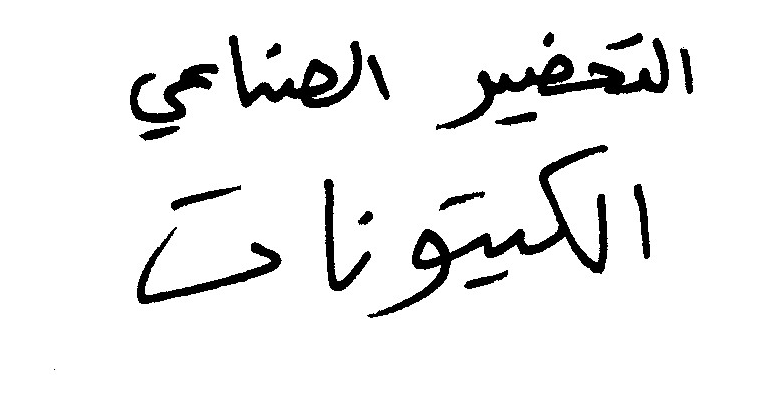 التحضير الصناعي
الكيتونات